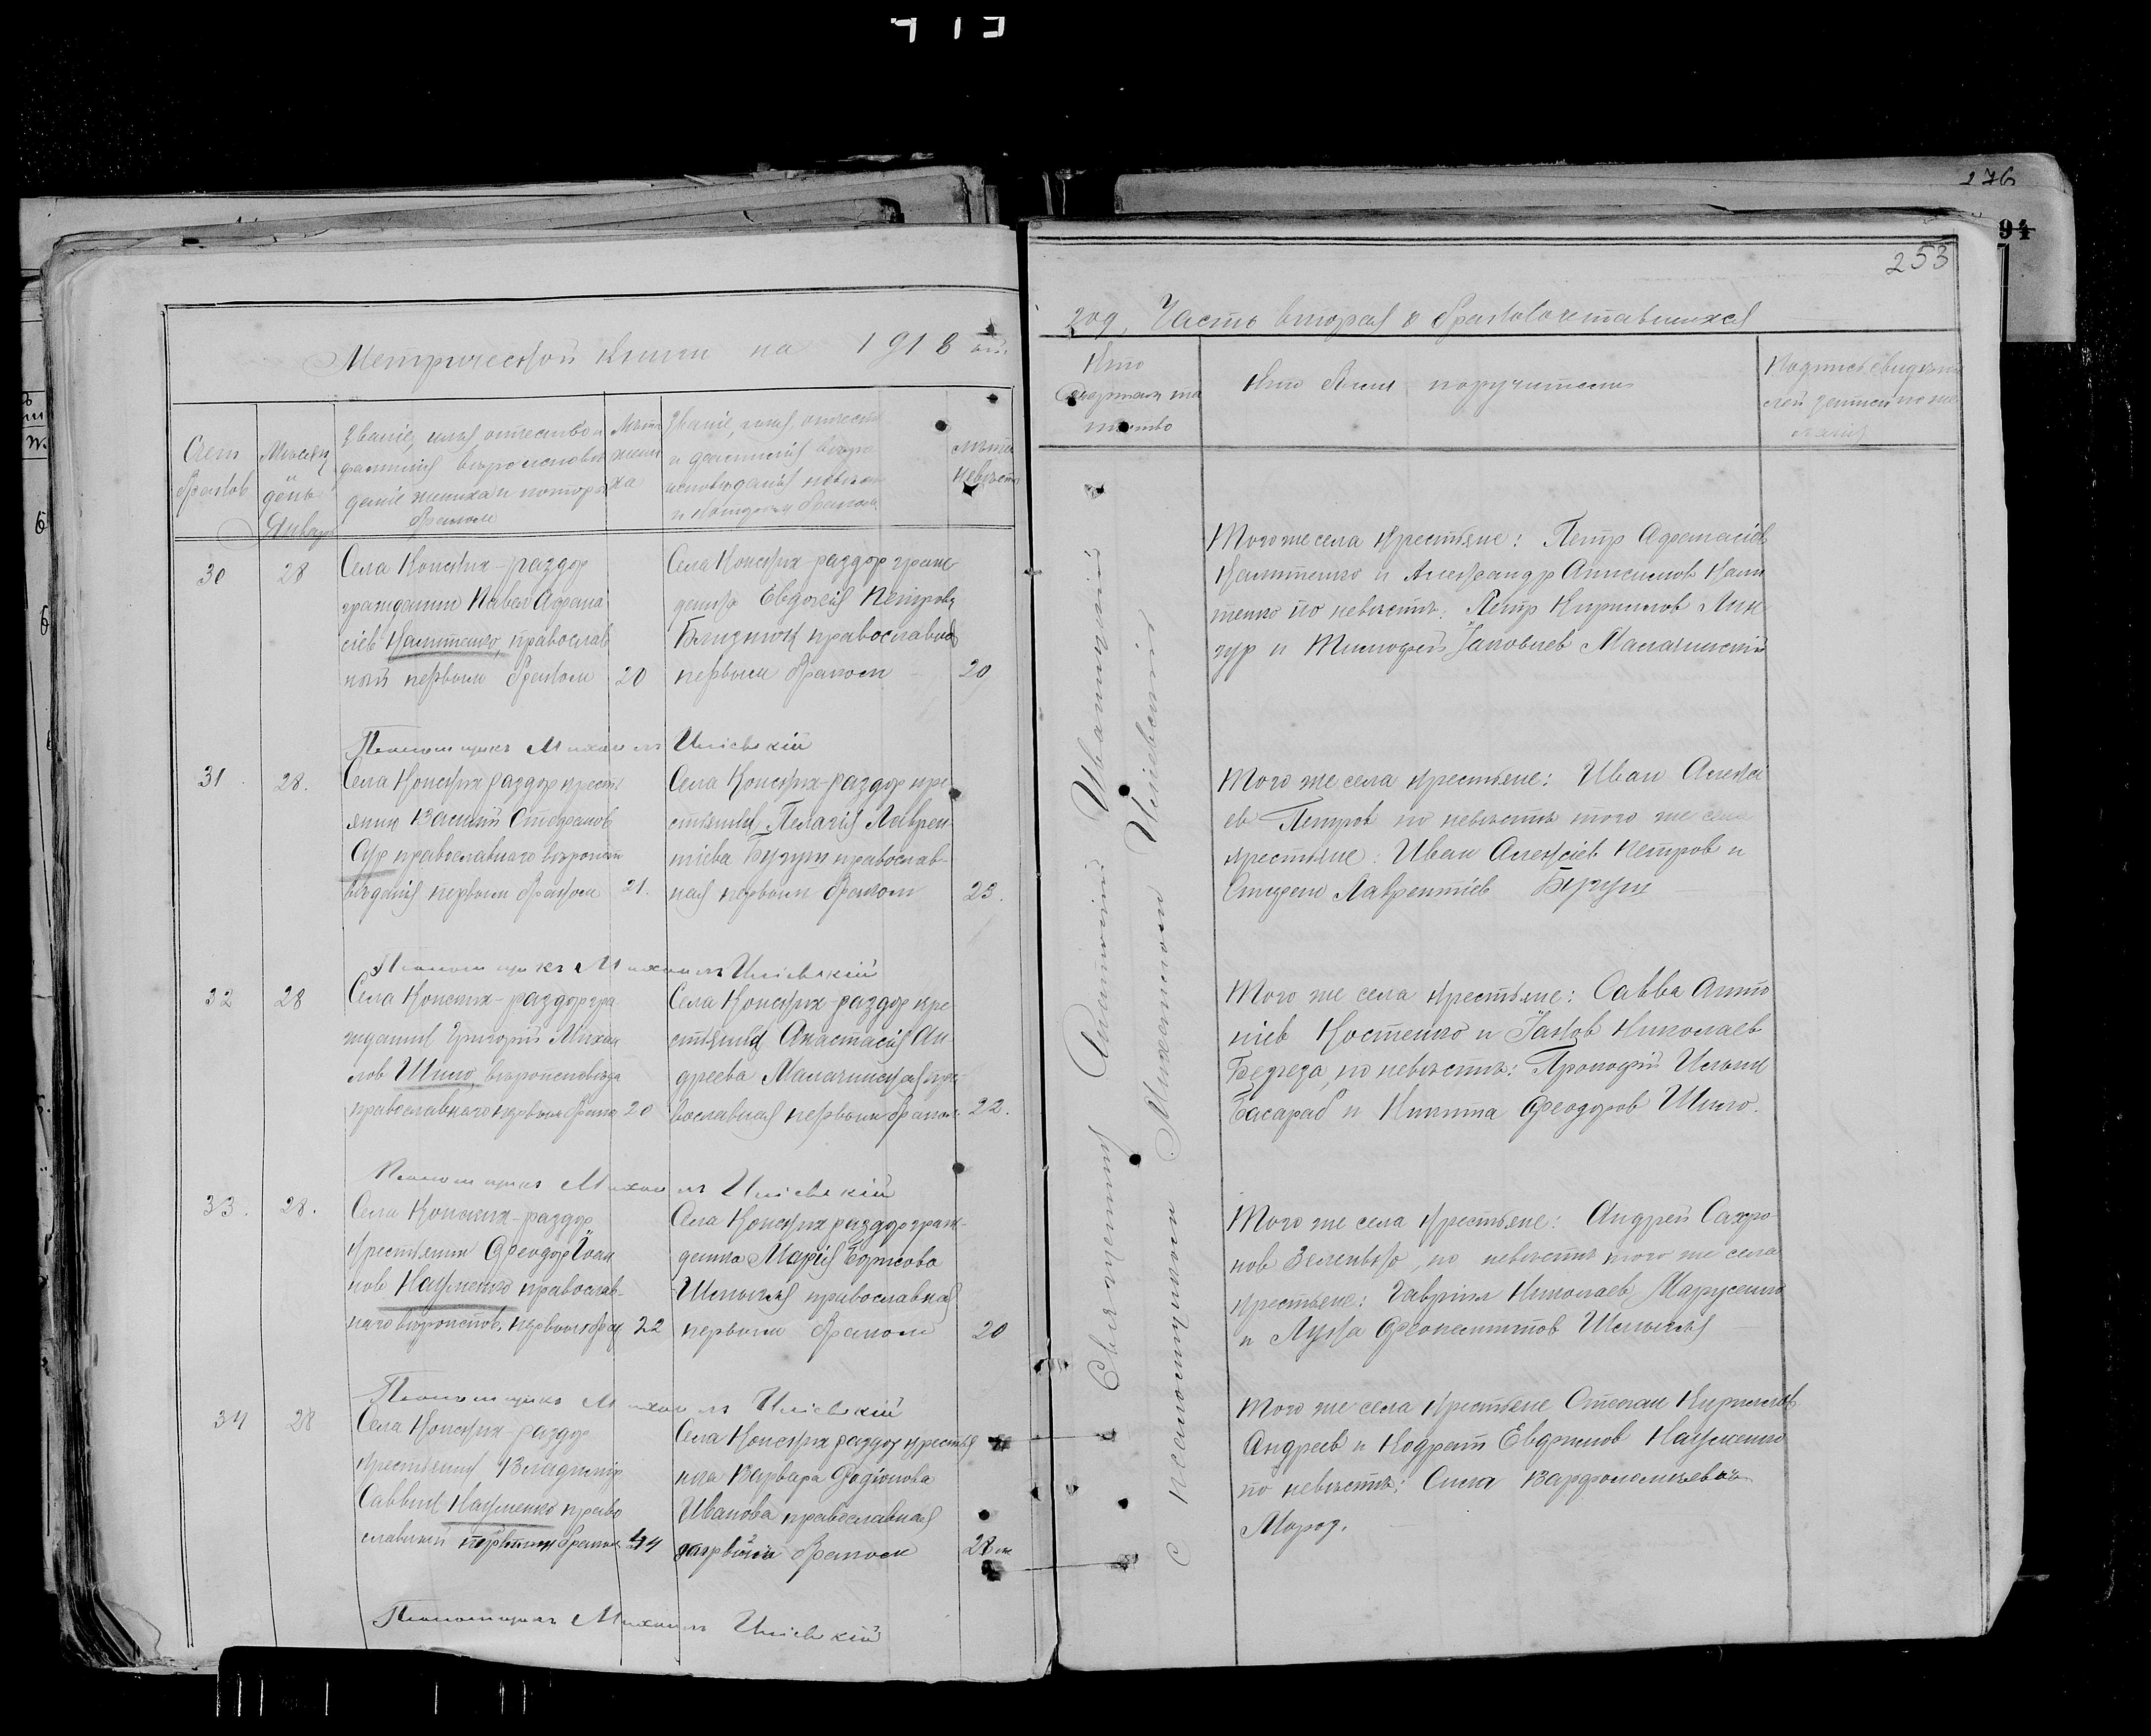 276
94
253
Метрической книги на 1918 ый
год, Часть вторая о бракосочетавшихся
Счет
браков
Месяц
день
Январь
Званіе, имя, отчество и
фамилія вероиспове
даніе жениха и которы
браком
Лета
жени
ха
Званіе, имя, отчест
и фамилія веро
исповеданія невест
и которым браком
лета
невест
Кто
совершал та
инство
Кто были поручители
Подпись свидете
лей записи по же
ланію
30
28
Села Конских-раздор
гражданин Павел Афана
сіев Калитенко, православ
ный первым браком
20
Села Конских раздор граж
данка Евдокія Петрова
Близнюк православная
первым браком
20
Того же села крестьяне: Петр Афанасіев
Калитенко и Александр Анисимов Кали
тенко по невесте: Петр Кирилов
и Тимофей Іаковлев Малачинскій
Псаломщикъ Михаилъ Иліевскій
31
28.
Села Конских раздор кресть
янин Василій Стефанов
православнаго вероиспо
веданія первым браком
21.
Села Конских-раздор кре
стьянка Пелагія Лаврен
тіева Бугущ православ-
ная первым браком
23.
Того же села крестьяне: Иван Алексі
ев Петров по невесте того же села
крестьяне: Иван Алексіев Петров и
Лаврентіев Бугущ
Псаломщикъ Михаилъ Иліевскій
32
28
Села Конских-раздор гра
жданин Григорій Михаи
лов Шило, вероисповеда
православнаго первым брако
20
Села Конских-раздор кре
стьянка Анастасія Ан-
дреева Малачинская пра
вославная первым браком
22.
Того же села крестьяне: Савва Анто
ніев Костенко и Іаков Николаев
по невесте: Прокофій Ильин
Басараб и Никита Феодоров Шило.
Псаломщикъ Михаилъ Иліевскій
33.
28.
Села Конских-раздор
крестьянин Феодор Іоан
нов Науменко православ-
наго вероиспов. первым брак
22
Села Конских раздор граж-
данка Марія Борисова
православная
первым браком
20
Того же села крестьяне: Андрей Сафро-
нов по невесте того же села
крестьяне: Гавріил Николаев Марусенко
и Лука Феопемптов
Псаломщикъ Михаилъ Иліевскій
34
28
Села Конских-раздор
крестьянин Владимір
Саввин Науменко право
славный первым браком
44
Села Конских раздор крестья
нка Варвара Родіонова
Иванова православная
браком
28
Того же села крестьяне Степан Кирилов
Андреев и Кодрат Евфимов Науменко
по невесте: Сила Варфоломеевов
Мороз.
Псаломщикъ Михаилъ Иліевскій
Священник Іоанникій
с псаломщиком Михаилом Иліевским